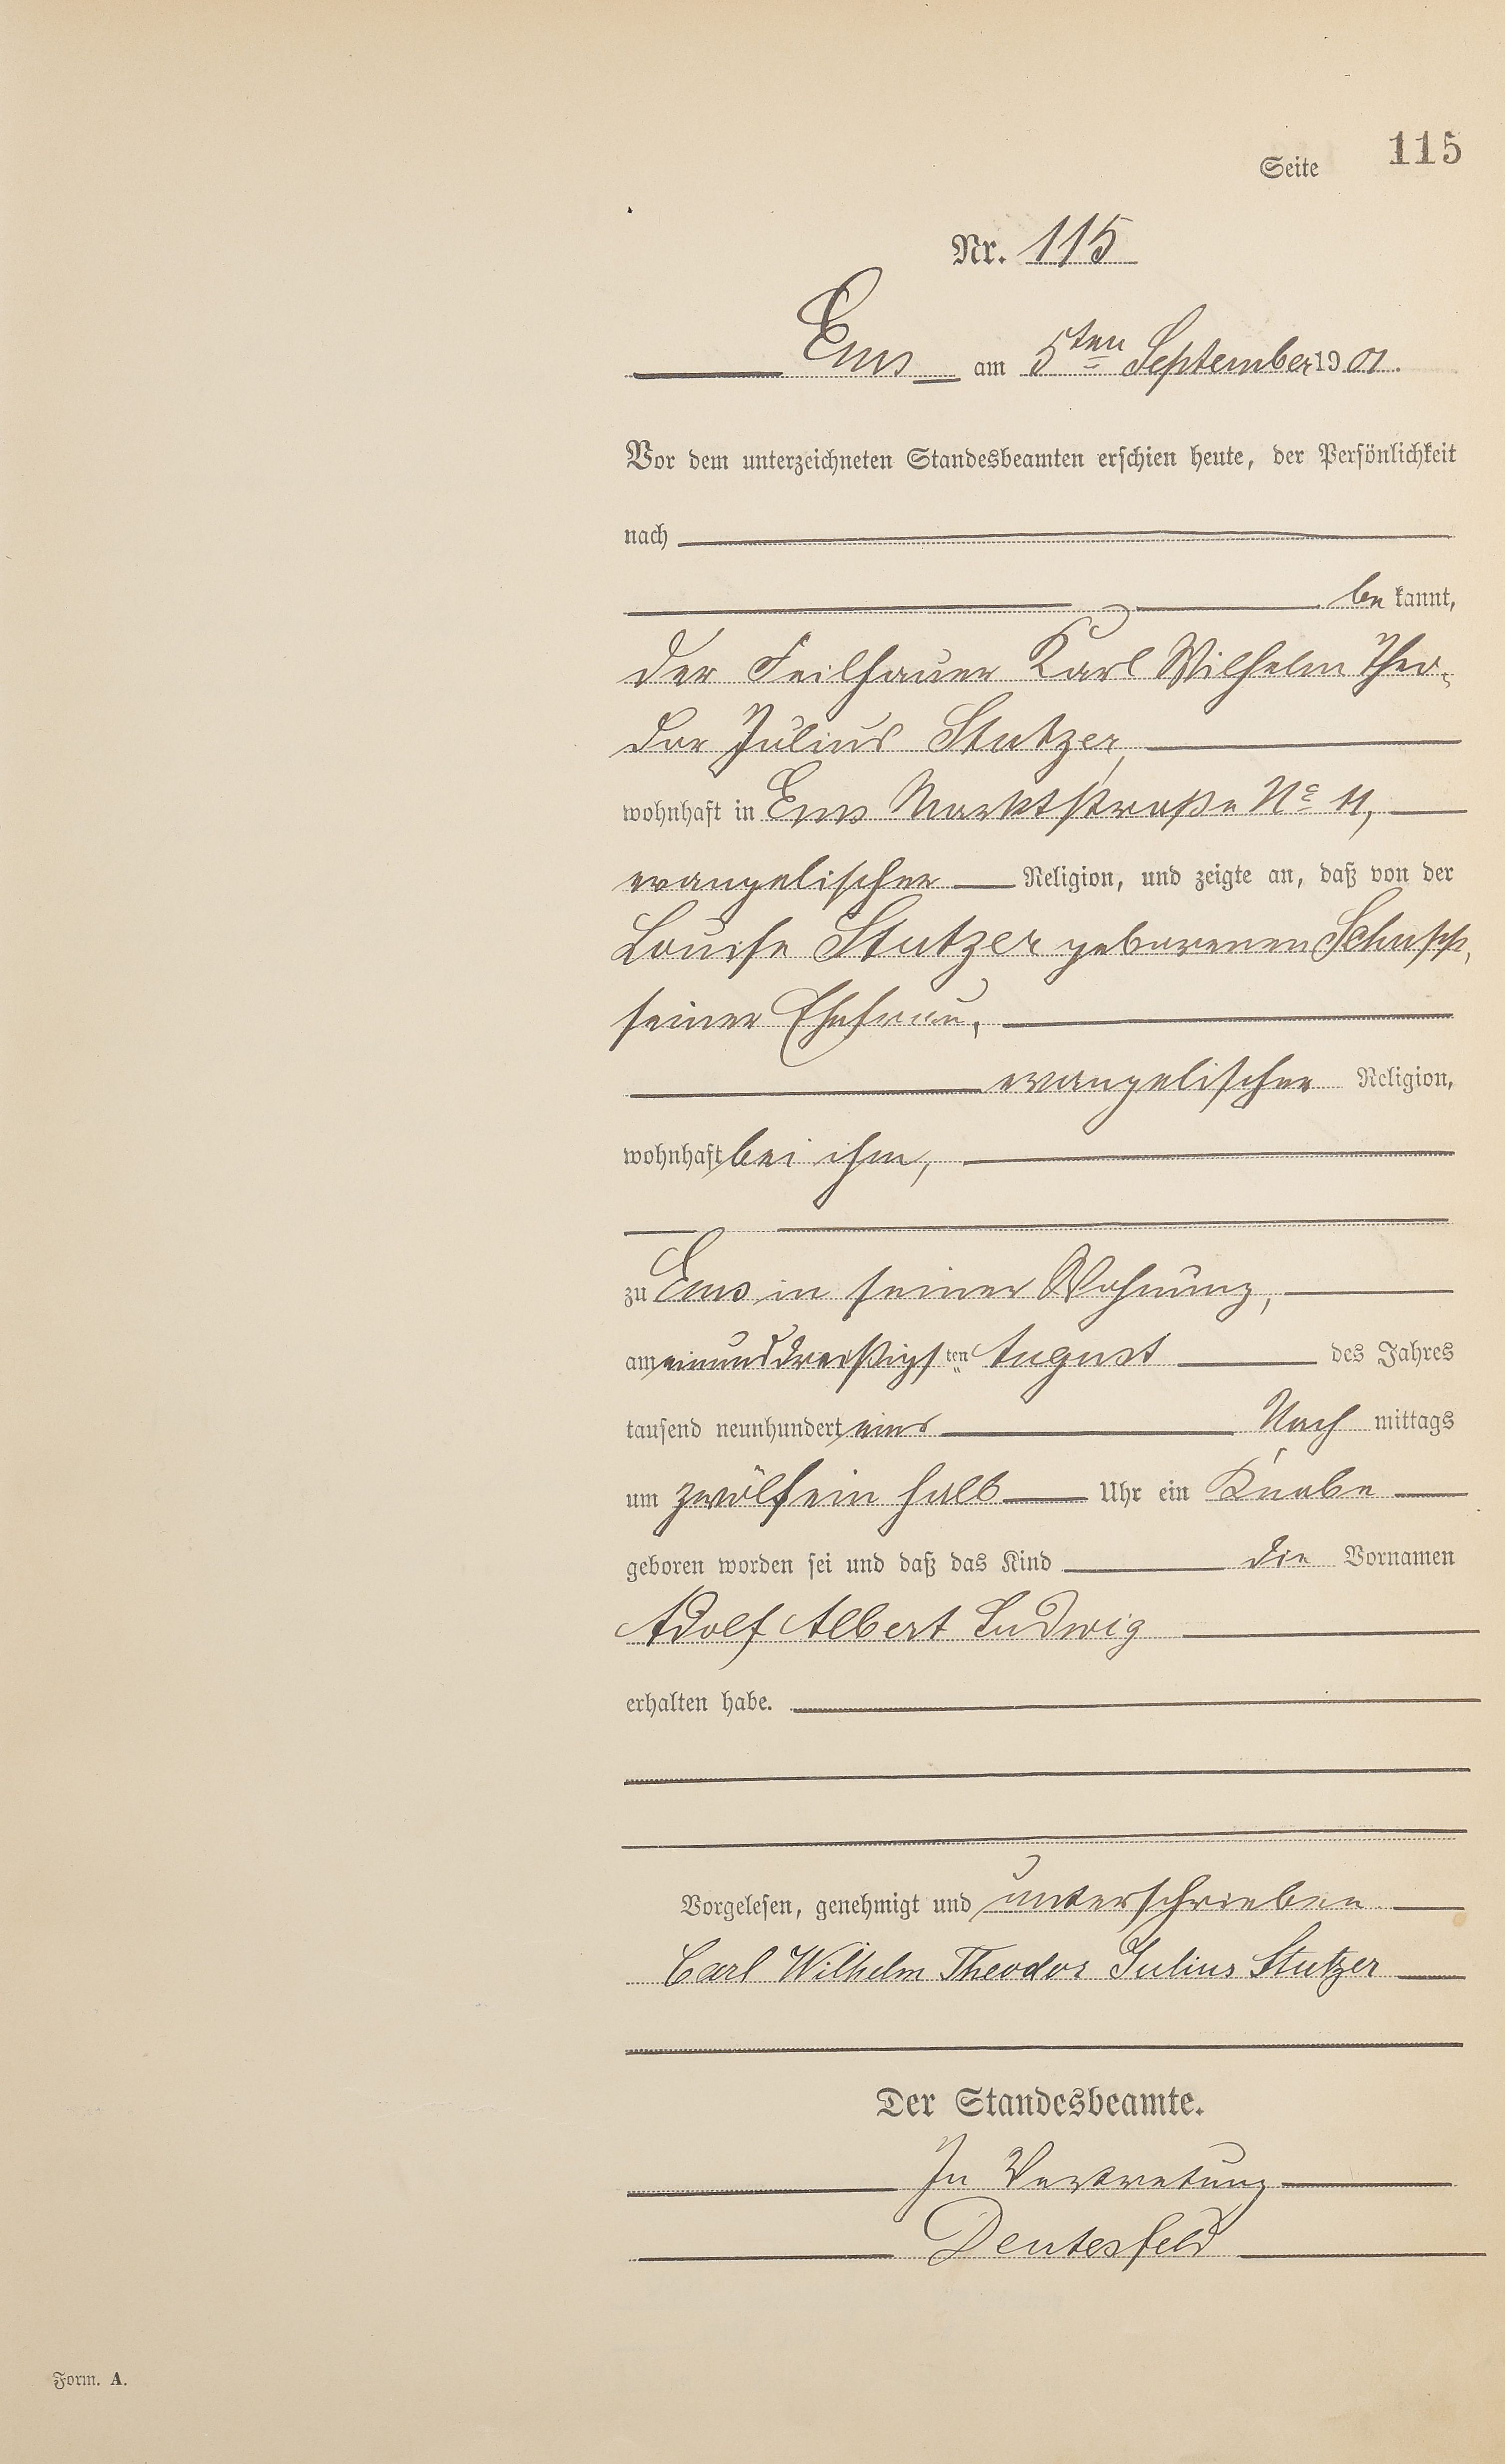 Seite 115
Nr. 115
Ems am 5ten September 1901.
Vor dem unterzeichneten Standesbeamten erschien heute, der Persönlichkeit
nach
be kannt,
der Feilhauer Karl Wilhelm Theo-
dor Julius Stutzer,
wohnhaft in Ems Marktstraße No 11,
evangelischer Religion, und zeigte an, daß von der
Louise Stutzer geborenen Schupp,
seiner Ehefrau,
evangelischer Religion,
wohnhaft bei ihm,
zu Ems in seiner Wohnung,
am einunddreißigsten August des Jahres
tausend neunhundert eins Nach mittags
um zwölf ein halb Uhr ein Knabe
geboren worden sei und daß das Kind die Vornamen
Adolf Albert Ludwig
erhalten habe.
Vorgelesen, genehmigt und unterschrieben
Carl Wilhelm Theodor Julius Stutzer
Der Standesbeamte.
In Vertretung
Deutesfeld
Form. A.